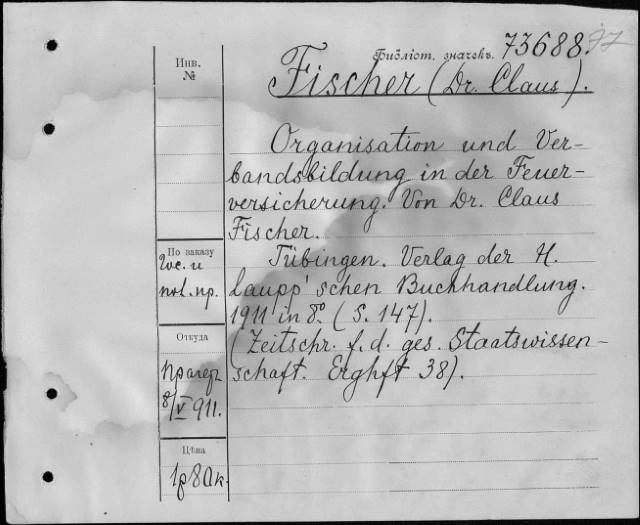 Библіот. значекъ. 73688.
Инв.
№
Fischer (Dr. Claus).
Organisation und Ver-
bandsbildung in der Feuer-
versicherung. Von Dr. Claus
Fischer.
Tübingen. Verlag der H.
Laupp'schen Buchhandlung.
1911 in 8° (S. 147).
(Zeitschr. f. d. ges. Staatswissen-
schaft. Erghft 38).
По заказу
пол. пр.
Откуда
8/V 911.
Цѣна
1р 80к.